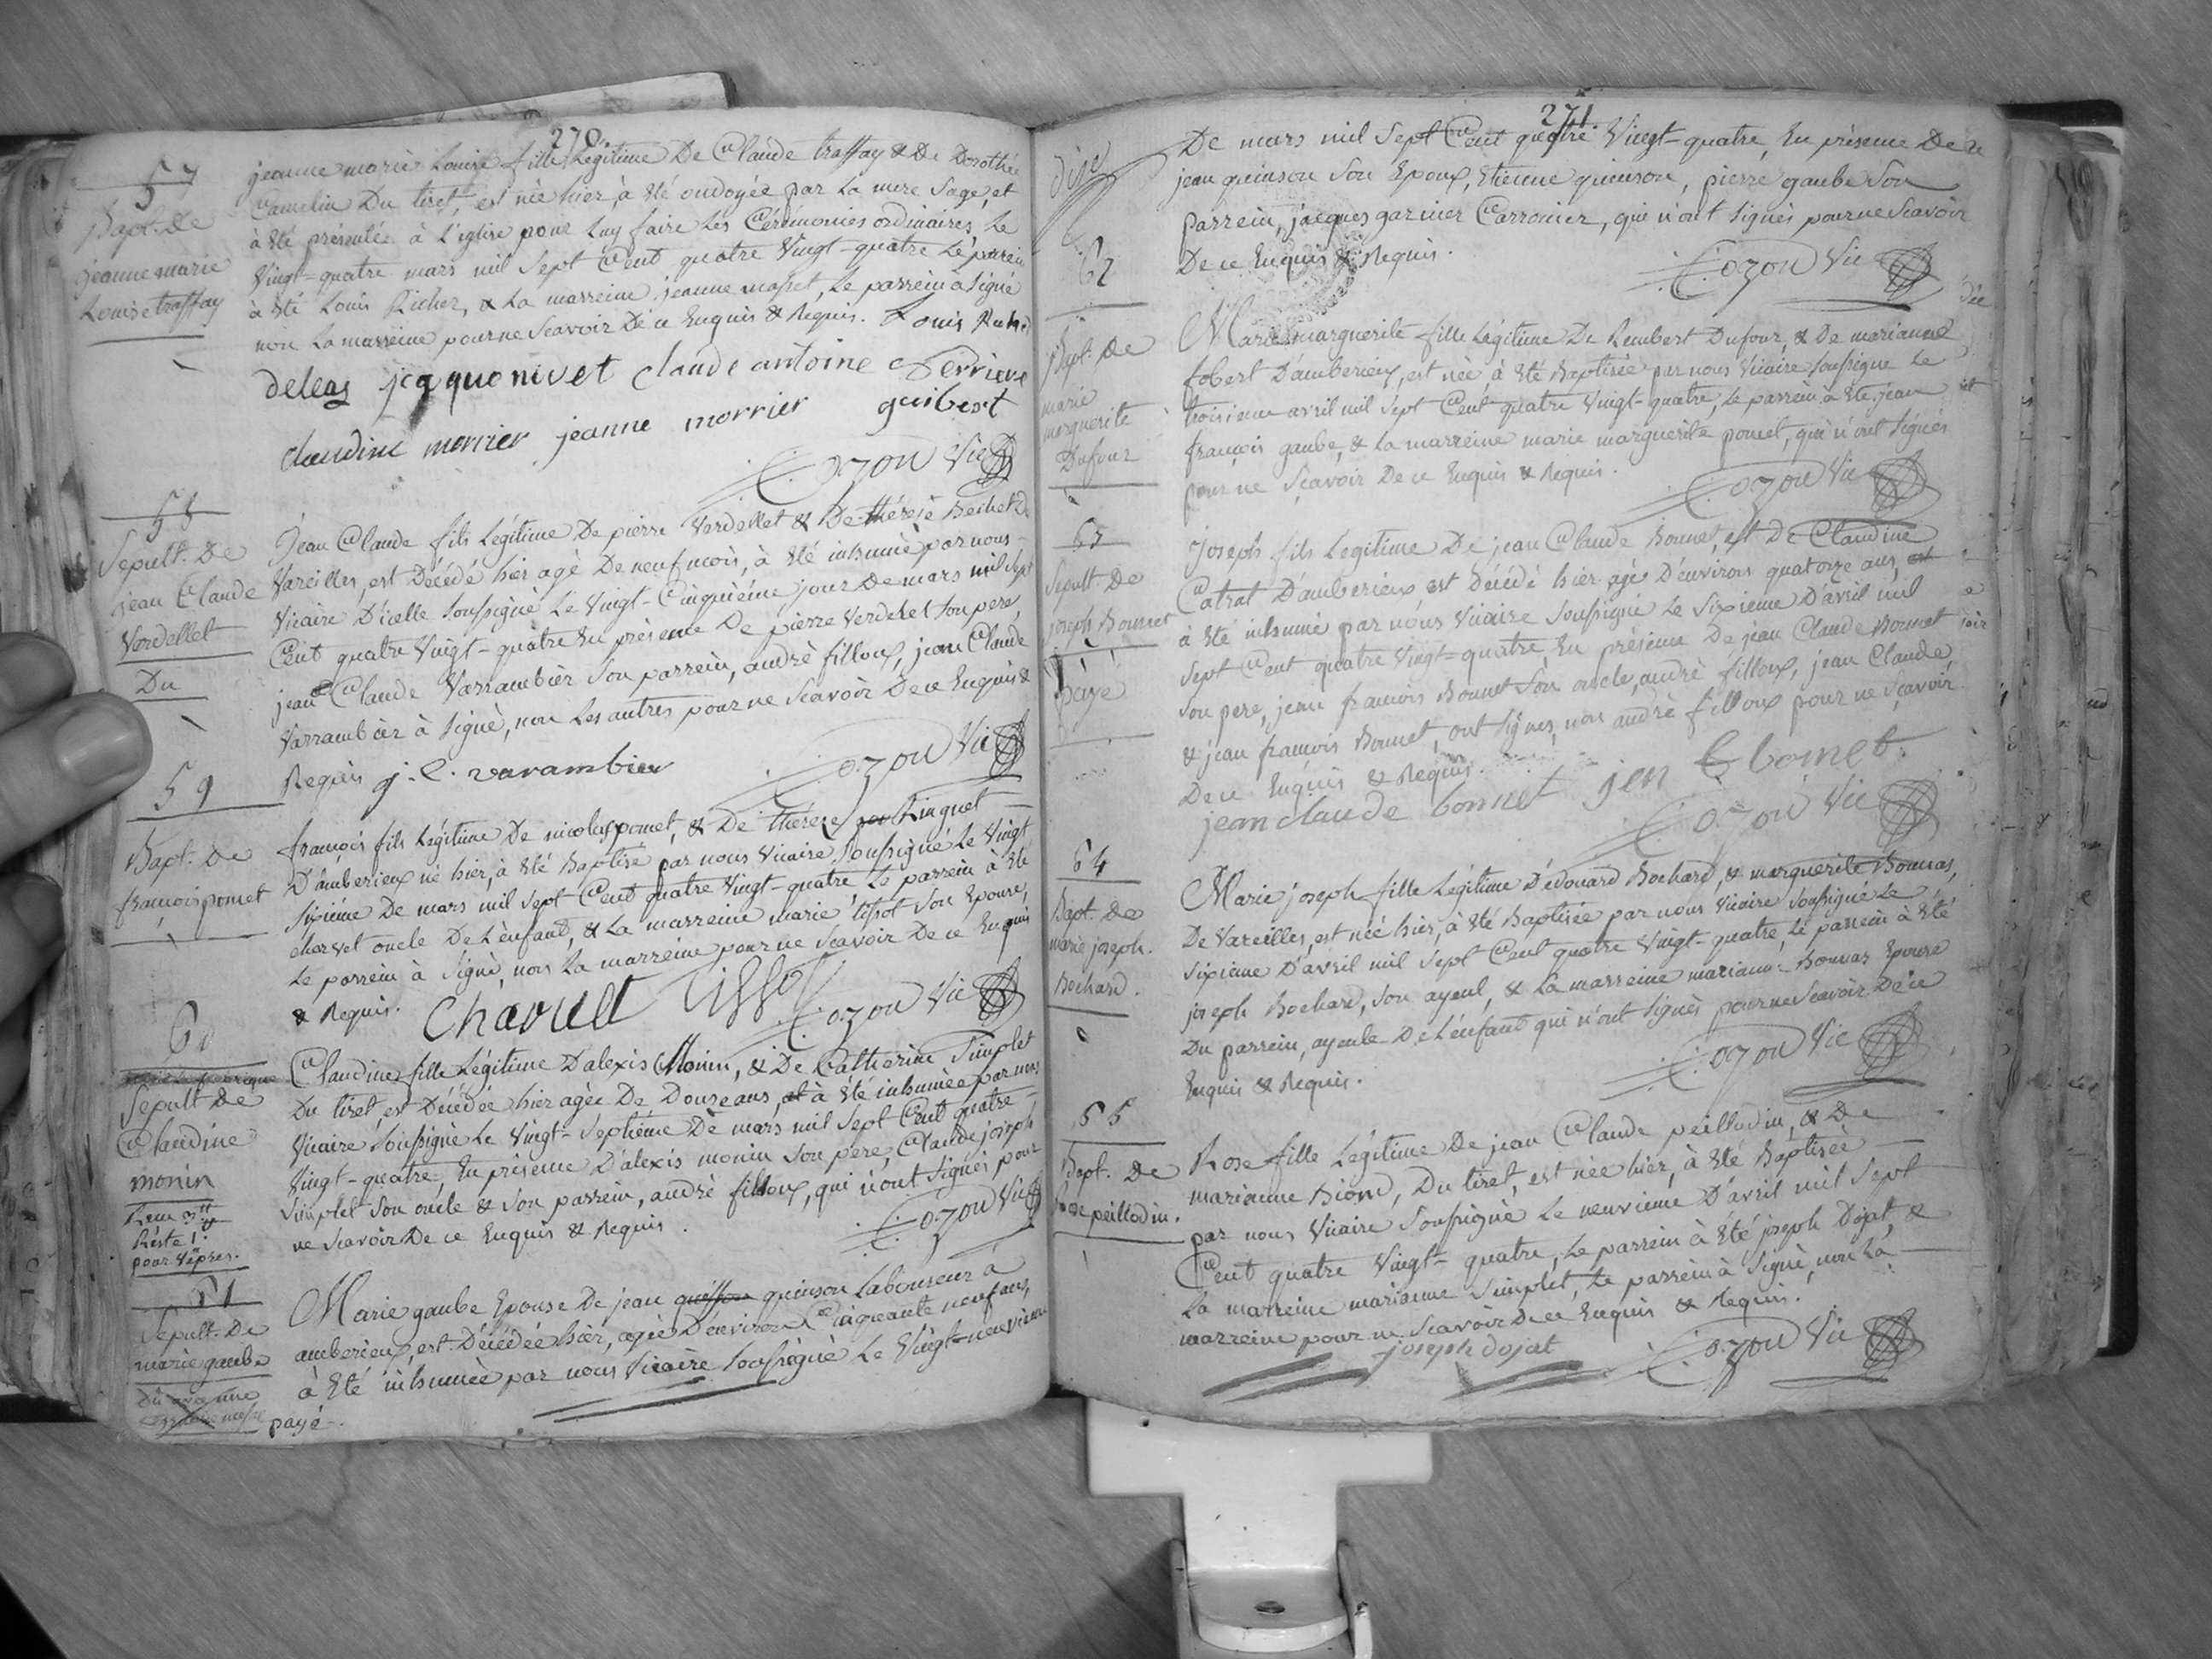 270.
57
Bapt. De
jeanne marie
Louise traffay
jeanne marie Louise fille Légitime De Claude traffay & De Dorothée
Camelin Du tiret, est née hier, à été ondoyée par la mere sage, et
à été présentée à L'eglise pour Luy faire Les Cérémonies ordinaires, Le
Vingt-quatre mars mil Sept Cent quatre Vingt-quatre Le parrein
à été Louis Richer, & La marreine jeanne , Le parrein a signé
non La marreine pour ne Scavoir De ce Enquis & Requis. Louis
deleaz jacque nivet claude antoine ferriere
claudine morrier jeanne morrier guibert
Cozon Vic
58
Sepult. De
jean Claude
Verdellet
Du
Jean Claude fils Légitime De pierre Verdellet & De thérèse Bechet De
Vareilles, est Décédé hier agé De neuf mois, à été inhumé par nous
Vicaire D'icelle Soussigné Le Vingt-Cinquième jour De mars mil Sept
Cent quatre Vingt-quatre En présence De pierre Verdelet son pere,
jean Claude Varrambier Son parrein, andré filloux, jean Claude
Varrambier à signé, non Les autres pour ne Scavoir De ce Enquis &
Requis j. C. varambier
Cozon Vic
59
Bapt. De
françois pomet
françois fils Légitime De nicolas pomet, & De thérèse Linguet
D'amberieux né hier, à été Baptisé par nous Vicaire Soussigné Le Vingt
Sixième De mars mil Sept Cent quatre Vingt-quatre, Le parrein à été
charvet oncle De L'enfant, & La marreine marie tissot Son Epouse,
Le parrein à signé, non La marreine pour ne Scavoir De ce Enquis
& Requis. Charvet Tissot
Cozon Vic
60
Sepult De
Claudine
monin
Reste 1
pour Vêpres.
Claudine fille Légitime D'alexis Monin, & De Catherine Simplet
Du tiret, est Décédée hier agée De Douze ans, et à été inhumée par nous
Vicaire Soussigné Le Vingt-Septième De mars mil Sept Cent quatre
Vingt-quatre En présence D'alexis monin Son pere, Claude joseph
Simplet Son oncle & Son parrein, andré filloux, qui n'ont signés pour
ne Scavoir De ce Enquis & Requis.
Cozon Vic
61
Sepult. De
marie gaube
payé.
Marie gaube Epouse De jean quinson Laboureur à
amberieux, est Décédée hier, agée D'environ Cinquante neuf ans,
à été inhumée par nous Vicaire Soussigné Le Vingt-neuvieme
271.
De mars mil Sept Cent quatre Vingt-quatre, En présence De
jean quinson Son Epoux, Etienne quinson, pierre gaube Son
parrein, jacques garnier Carronier, qui n'ont signés pour ne Scavoir
De ce Enquis & Requis.
Cozon Vic
62
Bapt. De
marie
marguerite
Dufour
Marie marguerite fille Légitime De Rembert Dufour, & De marianne
fobert D'amberieux, est née, à été Baptisée par nous Vicaire Soussigné Le
troisieme avril mil Sept Cent quatre Vingt-quatre, Le parrein à été jean
françois gaube, & La marreine marie marguerite pomet, qui n'ont signés
pour ne Scavoir De ce Enquis & Requis.
Cozon Vic
63
Sepult De
joseph Bonnet
payé
Joseph fils Legitime De jean Claude Bonnet, est De Claudine
Catrat D'amberieux est Décédé hier agé D'environ quatorze ans, et
à été inhumé par nous Vicaire Soussigné Le Sixieme D'avril mil
Sept Cent quatre Vingt-quatre En présence De jean Claude Bonnet
Son pere, jean francois Bonnet Son oncle, andré filloux, jean Claude
& jean francois Bonnet, ont signés, non andré filloux pour ne Scavoir
De ce Enquis & Requis.
jean claude bonnet jen bonnet
Cozon Vic
64
Bapt. De
marie joseph.
Bochard.
Marie joseph fille Légitime D'édouard Bochard, & marguerite Bonnas,
De Vareilles, est née hier, à été Baptisée par nous Vicaire Soussigné Le
Sixieme D'avril mil Sept Cent quatre Vingt-quatre, Le parrein à été
joseph Bochard, Son ayeul, & La marreine marianne Bonnas Epouse
Du parrein, ayeule De L'enfant qui n'ont signés pour ne Scavoir De ce
Enquis & Requis.
Cozon Vic
65
Bapt. De
Rose peillodin.
Rose fille Légitime De jean Claude peillodin, & De
marianne Biond, Du tiret, est née hier, à été Baptisée
par nous Vicaire Soussigné Le neuvieme D'avril mil Sept
Cent quatre Vingt-quatre, Le parrein à été joseph Dojat, &
La marreine marianne Simplet, Le parrein à signé, non La
marreine pour ne Scavoir De ce Enquis & Requis.
joseph dojat
Cozon Vic